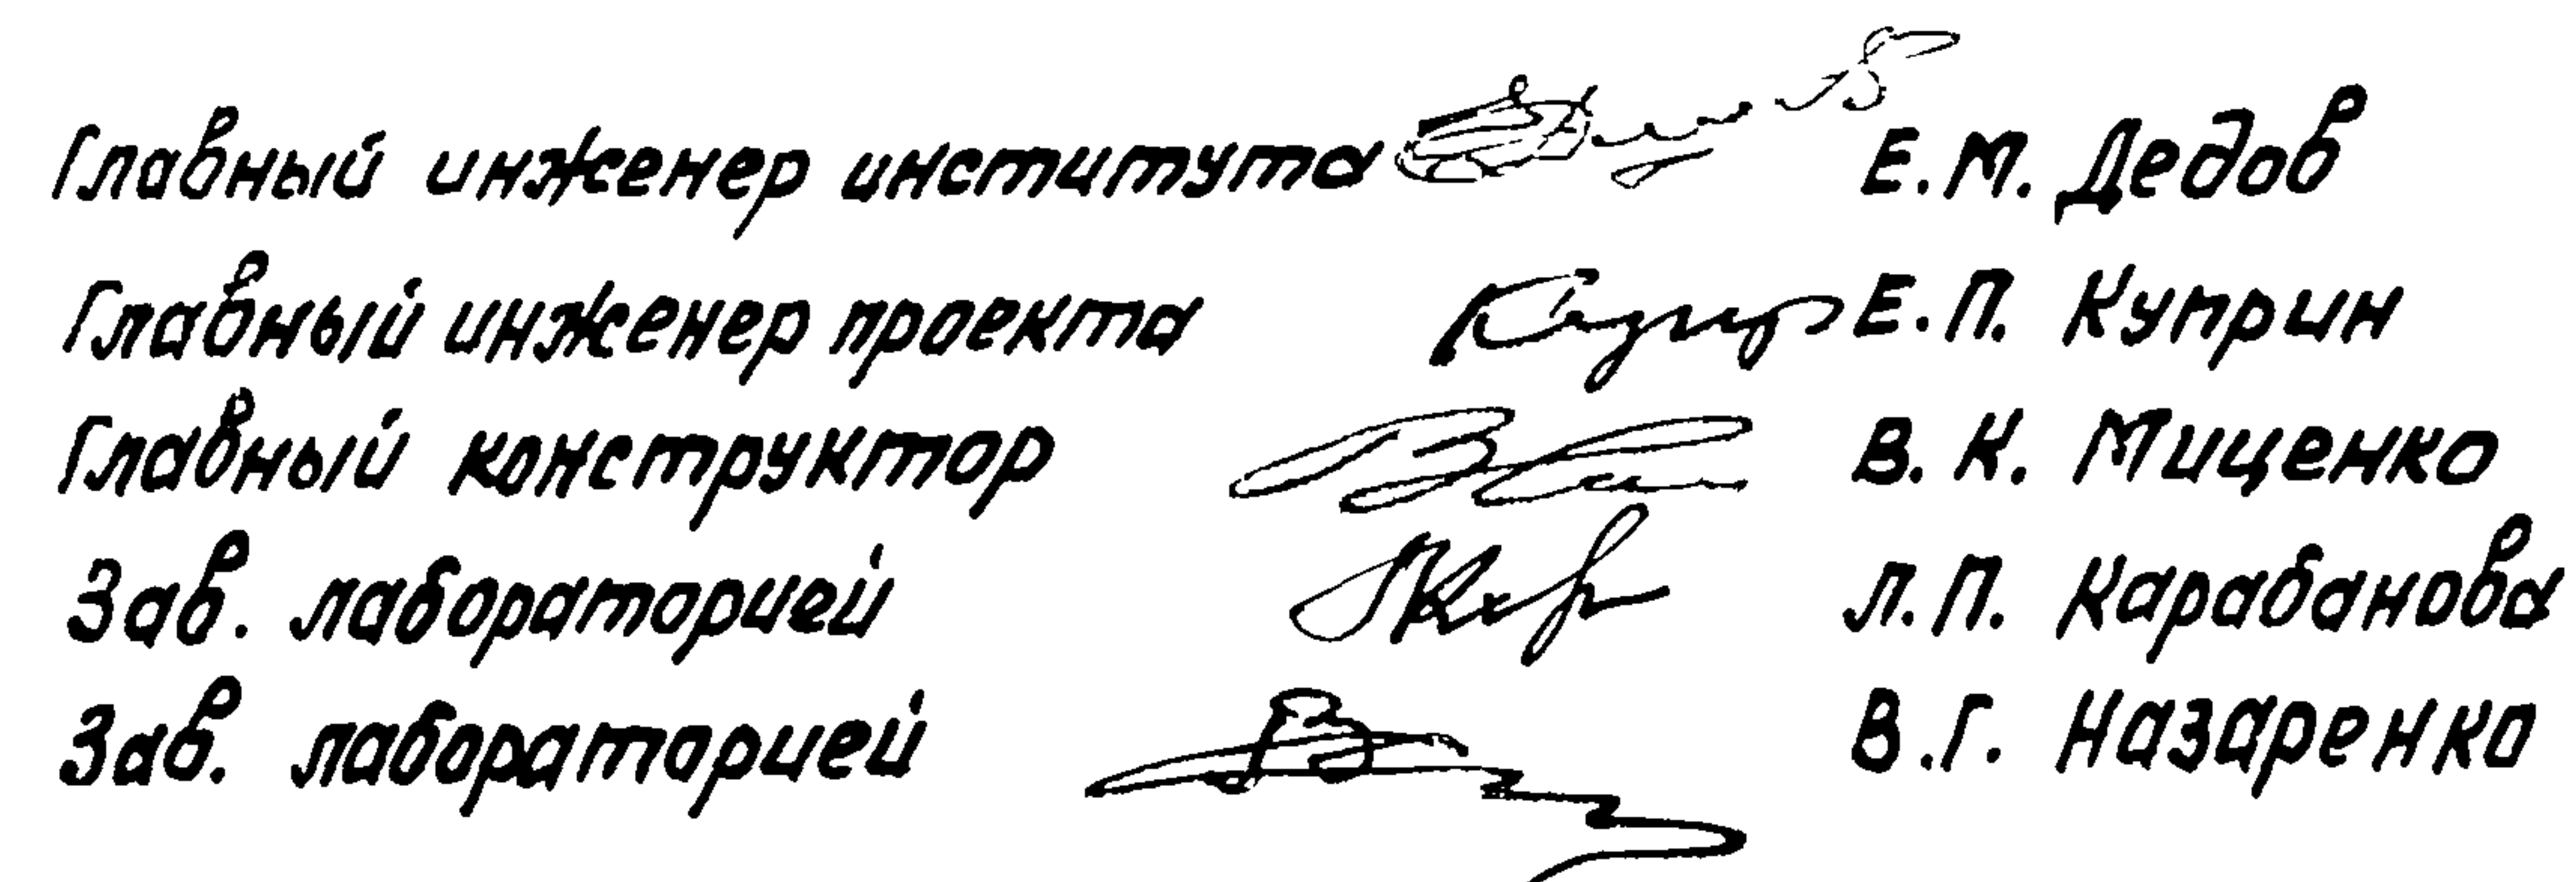 Главный инженер института Е.М. Дедов
Главный инженер проекта Е.П. Куприн
Главный конструктор В.К. Миценко
Зав. лабораторией Л.П. Карабанова
Зав. лабораторией В.Г. Назаренко